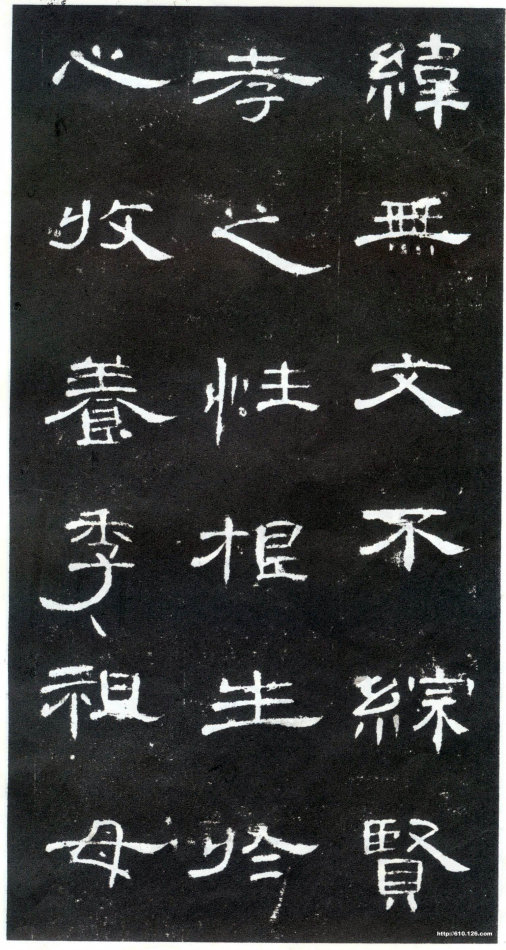 緯無文不綜賢
孝之性根生於
心收養季祖母
http://610.126.com